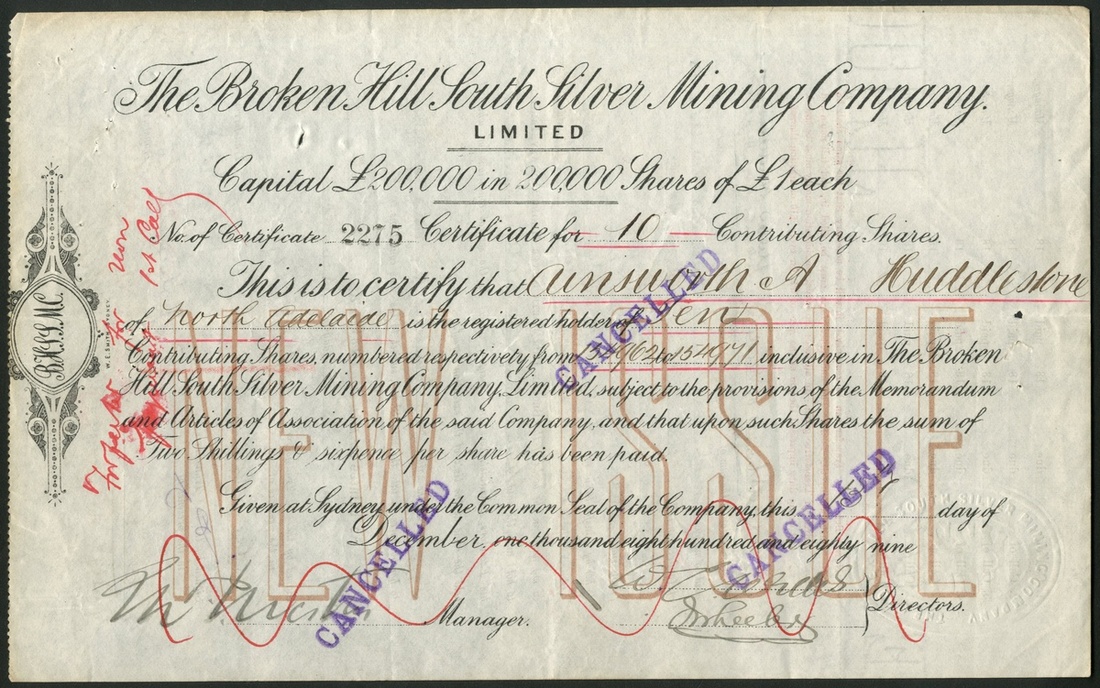 The Broken Hill South Silver Mining Company.
LIMITED
Capital £200,000 in 200,000 Shares of £1 each
No. of Certificate 2275 Certificate for 10 Contributing Shares.
This is to certify that Unsworth A Huddlestone
of North Adelaide is the registered holder of Ten
Contributing Shares, numbered respectively from to inclusive in The Broken
Hill South Silver Mining Company, Limited, subject to the provisions of the Memorandum
and Articles of Association of the said Company, and that upon such Shares the sum of
Two Shillings & sixpence per share has been paid.
Given at Sydney under the Common Seal of the Company, this day of
December, one thousand eight hundred and eighty nine
Manager.
Wheeler
Directors.
NEW ISSUE
CANCELLED
CANCELLED
CANCELLED
B.H.S.S.M.C.
for non
1st Call